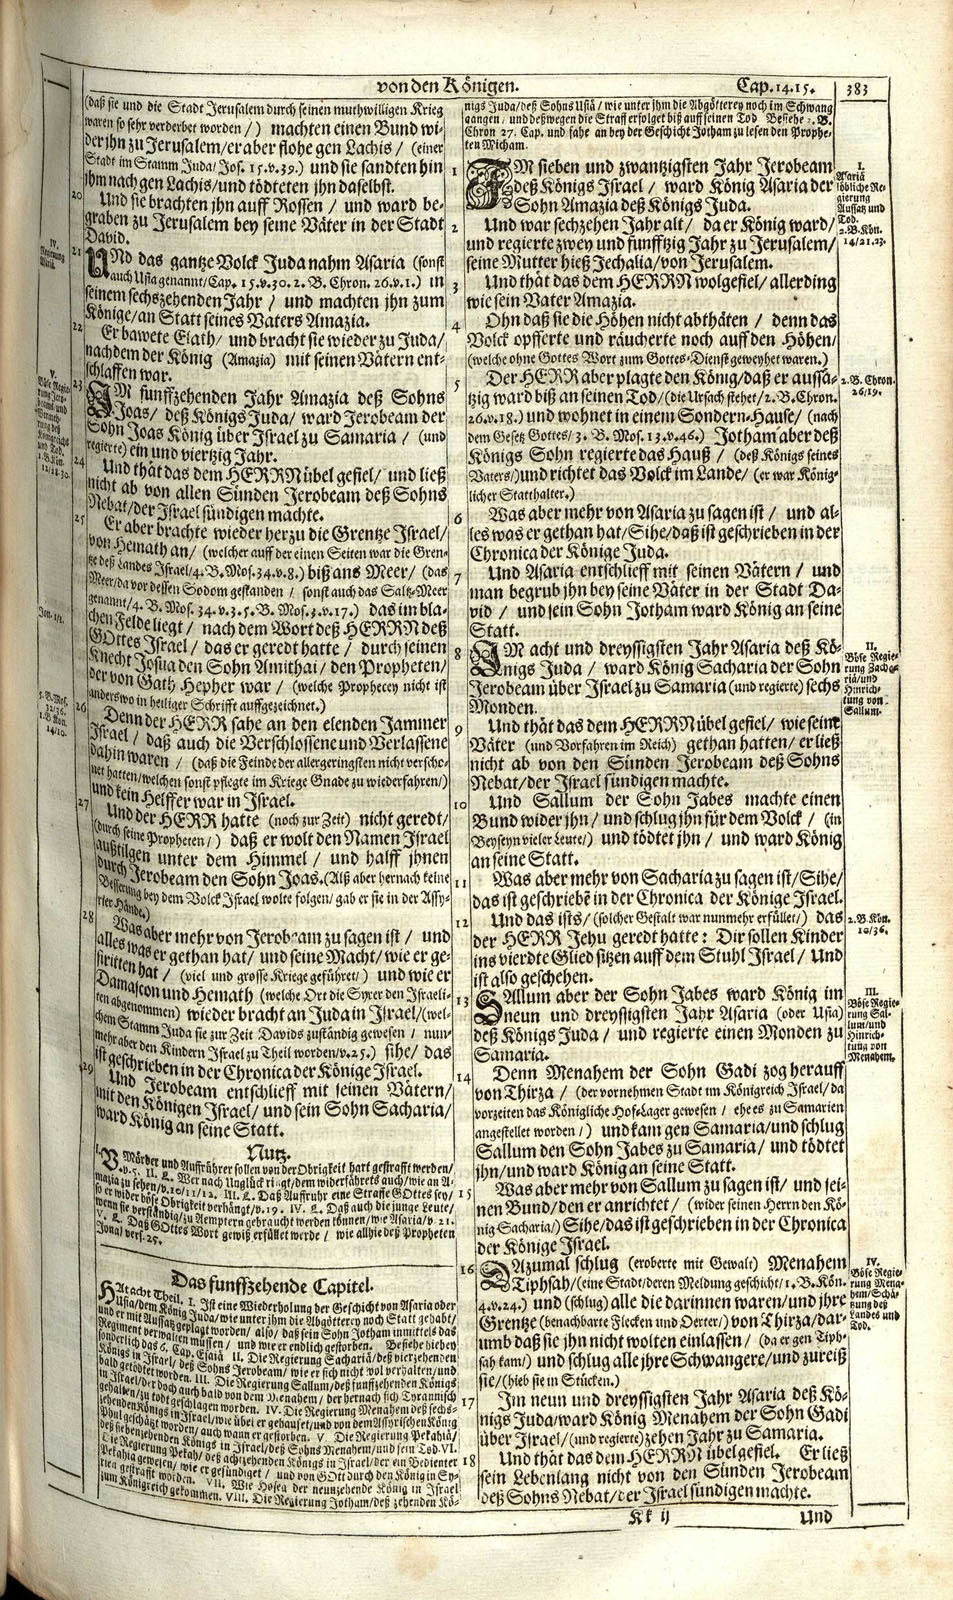 von den Königen. Cap. 14. 15. 383
(daß sie und die Stadt Jerusalem durch seinen muthwilligen Krieg
waren so sehr verderbet worden/) machten einen Bund wi-
der jhn zu Jerusalem/ er aber flohe gen Lachis/ (einer
Stadt im Stamm Juda/ Jos. 15. v. 39.) und sie sandten hin
jhm nach gen Lachis/ und tödteten jhn daselbst.
20 Und sie brachten jhn auff Rossen / und ward be-
graben zu Jerusalem bey seine Väter in der Stadt
David.
21 UNd das gantze Volck Juda nahm Asaria (sonst
auch Usia genannt/ Cap. 15. v. 30. 2. B. Chron. 26. v. 1.) in
seinem sechszehenden Jahr / und machten jhn zum
Könige/ an Statt seines Vaters Amazia.
22 Er bawete Elath/ und bracht sie wieder zu Juda/
nachdem der König (Amazia) mit seinen Vätern ent-
schlaffen war.
23 IM funffzehenden Jahr Amazia deß Sohns
Joas/ deß Königs Juda/ ward Jerobeam der
Sohn Joas König über Israel zu Samaria / (und
regierte) ein und viertzig Jahr.
24 Und thät das dem HERRN übel gefiel / und ließ
nicht ab von allen Sünden Jerobeam deß Sohns
Nebat/ der Israel sündigen machte.
25 Er aber brachte wieder herzu die Grentze Israel/
von Hemath an/ (welcher auff der einen Seiten war die Gren-
tze deß Landes Israel/ 4. B. Mos. 34. v. 8.) biß ans Meer/ (das
Meer/ da vor dessen Sodom gestanden / sonst auch das Saltz-Meer
genannt/ 4. B. Mos. 34. v. 3. 5. B. Mos. 3. v. 17.) das im bla-
chen Felde liegt / nach dem Wort deß HERRN deß
GOttes Israel / das er geredt hatte / durch seinen
Knecht Josua den Sohn Amithai / den Propheten/
der von Gath Hepher war / (welche Prophecey nicht ist
anderswo in heiliger Schrifft auffgezeichnet.)
26 Denn der HERR sahe an den elenden Jammer
Israel / daß auch die Verschlossene und Verlassene
dahin waren / (daß die Feinde der allergeringsten nicht verscho-
net hatten/ welchen sonst pflegte im Kriege Gnade zu wiederfahren/)
und kein Helffer war in Israel.
27 Und der HERR hatte (noch zur Zeit) nicht geredt/
(durch seine Propheten/) daß er wolt den Namen Israel
außtilgen unter dem Himmel / und halff jhnen
durch Jerobeam den Sohn Joas. (Alß aber hernach keine
Besserung bey dem Volck Israel wolte folgen/ gab er sie in der Assy-
rier Hände.)
28 Was aber mehr von Jerobeam zu sagen ist / und
alles was er gethan hat/ und seine Macht/ wie er ge-
stritten hat / (viel und grosse Kriege geführet/) und wie er
Damascon und Hemath (welche Ort die Syrer den Israeli-
ten abgenommen) wieder bracht an Juda in Israel/ (wel-
chem Stamm Juda sie zur Zeit Davids zuständig gewesen / nun-
mehr aber den Kindern Israel zu Theil worden/ v. 25.) sihe/ das
ist geschrieben in der Chronica der Könige Israel.
29 Und Jerobeam entschlieff mit seinen Vätern/
mit den Königen Israel/ und sein Sohn Sacharia/
ward König an seine Statt.
Nutz.
I. Mörder und Auffrührer sollen von der Obrigkeit hart gestrafft werden/
v. 5. II. L. Wer nach Unglück ringt/ dem widerfährets auch/ wie an A-
mazia zu sehen/ v. 10/11/12. III. L. Daß Auffruhr eine Straffe GOttes sey/
so er wider böse Obrigkeit verhängt/ v. 19. IV. L. Daß auch die junge Leute/
wenn sie verständig/ zu Aemptern gebraucht werden können/ wie Asaria/ v. 21.
V. L. Daß GOttes Wort gewiß erfüllet werde / wie allhie deß Propheten
Jona/ vers. 25.
Das funffzehende Capitel.
HAt acht Theil. I. Ist eine Wiederholung der Geschicht von Asaria oder
Usia/ dem König Juda/ wie unter jhm die Abgötterey noch Statt gehabt/
und er mit Aussatz geplagt worden/ also/ daß sein Sohn Jotham inmittels das
Regiment verwalten müssen / und wie er endlich gestorben. Besiehe hiebey
sonderlich das 6. Cap. Esaiä. II. Die Regierung Sachariä/ deß vierzehenden
Königs in Israel/ deß Sohns Jerobeam/ wie er sich nicht wol verhalten/ und
bald getödtet worden. III. Die Regierung Sallum/ deß funffzehenden Königs
in Israel/ der doch auch bald von dem Menahem/ der hernach sich Tyrannisch
gehalten/ zu todt geschlagen worden. IV. Die Regierung Menahem deß sechs-
zehenden Königs in Israel/ wie übel er gehauset/ und von dem Assyrischen König
Phul geschätzt worden/ auch wann er gestorben. V. Die Regierung Pekahia/
deß siebenzehenden Königs in Israel/ deß Sohns Menahem/ und sein Tod. VI.
Die Regierung Pekah/ deß achtzehenden Königs in Israel/ der ein Bedienter
Pekahia gewesen/ wie er gesündiget / und von GOtt durch den König in Sy-
rien gestrafft worden. VII. Wie Hosea der neunzehende König in Israel
zum Königreich gekommen. VIII. Die Regierung Jotham/ deß zehenden Kö-
nigs Juda/ deß Sohns Usiä/ wie unter jhm die Abgötterey noch im Schwang
gangen/ und deßwegen die Straff erfolget biß auff seinen Tod. Besiehe 2. B.
Chron 27. Cap. und sahe an bey der Geschicht Jotham zu lesen den Prophe-
ten Micham.
1 IM sieben und zwantzigsten Jahr Jerobeam
deß Königs Israel / ward König Asaria der
Sohn Amazia deß Königs Juda.
2 Und war sechzehen Jahr alt/ da er König ward/
und regierte zwey und funfftzig Jahr zu Jerusalem/
seine Mutter hieß Jechalia/ von Jerusalem.
3 Und thät das dem HERRN wolgefiel/ allerding
wie sein Vater Amazia.
4 Ohn daß sie die Höhen nicht abthäten / denn das
Volck opfferte und räucherte noch auff den Höhen/
(welche ohn Gottes Wort zum Gottes-Dienst geweyhet waren.)
5 Der HERR aber plagte den König/ daß er aussä-
tzig ward biß an seinen Tod/ (die Ursach stehet/ 2. B. Chron.
26. v. 18.) und wohnet in einem Sondern-Hause/ (nach
dem Gesetz Gottes/ 3. B. Mos. 13. v. 46.) Jotham aber deß
Königs Sohn regierte das Hauß/ (deß Königs seines
Vaters/) und richtet das Volck im Lande/ (er war König-
licher Statthalter.)
6 Was aber mehr von Asaria zu sagen ist / und al-
les was er gethan hat/ Sihe/ daß ist geschrieben in der
Chronica der Könige Juda.
7 Und Asaria entschlieff mit seinen Vätern / und
man begrub jhn bey seine Väter in der Stadt Da-
vid / und sein Sohn Jotham ward König an seine
Statt.
8 IM acht und dreyssigsten Jahr Asaria deß Kö-
nigs Juda / ward König Sacharia der Sohn
Jerobeam über Israel zu Samaria (und regierte) sechs
Monden.
9 Und thät das dem HERRN übel gefiel/ wie seine
Väter (und Vorfahren im Reich) gethan hatten/ er ließ
nicht ab von den Sünden Jerobeam deß Sohns
Nebat/ der Israel sündigen machte.
10 Und Sallum der Sohn Jabes machte einen
Bund wider jhn/ und schlug jhn für dem Volck / (in
Beyseyn vieler Leute/) und tödtet jhn / und ward König
an seine Statt.
11 Was aber mehr von Sacharia zu sagen ist/ Sihe/
das ist geschriebē in der Chronica der Könige Israel.
12 Und das ists/ (solcher Gestalt war nunmehr erfüllet/) das
der HERR Jehu geredt hatte: Dir sollen Kinder
ins vierdte Glied sitzen auff dem Stuhl Israel/ Und
ist also geschehen.
13 SAllum aber der Sohn Jabes ward König im
neun und dreyssigsten Jahr Asaria (oder Usia)
deß Königs Juda/ und regierte einen Monden zu
Samaria.
14 Denn Menahem der Sohn Gadi zog herauff
von Thirza / (der vornehmen Stadt im Königreich Israel/ da
vorzeiten das Königliche Hof-Lager gewesen / ehe es zu Samarien
angestellet worden/) und kam gen Samaria/ und schlug
Sallum den Sohn Jabes zu Samaria/ und tödtet
jhn/ und ward König an seine Statt.
15 Was aber mehr von Sallum zu sagen ist/ und sei-
nen Bund/ den er anrichtet/ (wider seinen Herrn den Kö-
nig Sacharia) Sihe/ das ist geschrieben in der Chronica
der Könige Israel.
16 DAzumal schlug (eroberte mit Gewalt) Menahem
Tiphsah/ (eine Stadt/ deren Meldung geschicht/ 1. B. Kön.
4. v. 24.) und (schlug) alle die darinnen waren/ und jhre
Grentze (benachbarte Flecken und Oerter/) von Thirza/ dar-
umb daß sie jhn nicht wolten einlassen/ (da er gen Tiph-
sah kam/) und schlug alle jhre Schwangere/ und zureiß
sie/ (hieb sie in Stücken.)
17 Im neun und dreyssigsten Jahr Asaria deß Kö-
nigs Juda/ ward König Menahem der Sohn Gadi
über Israel/ (und regierte) zehen Jahr zu Samaria.
18 Und thät das dem HERRN übelgefiel. Er ließ
sein Lebenlang nicht von den Sünden Jerobeam
deß Sohns Nebat/ der Israel sündigen machte.
Kk ij Und
I.
Asariä
löbliche Re-
gierung
Aussatz und
Tod.
2. B. Kön.
14/21.23.
2. B. Chron.
26/19.
II.
Böse Regie-
rung Zacha-
riä/ und
Hinrich-
tung von
Sallum.
2. B. Kön.
10/36.
III.
Böse Regie-
rung Sal-
lum/ und
Hinrich-
tung von
Menahem.
IV.
Böse Regie-
rung Mena-
hem/ Schä-
tzung deß
Landes und
Tod.